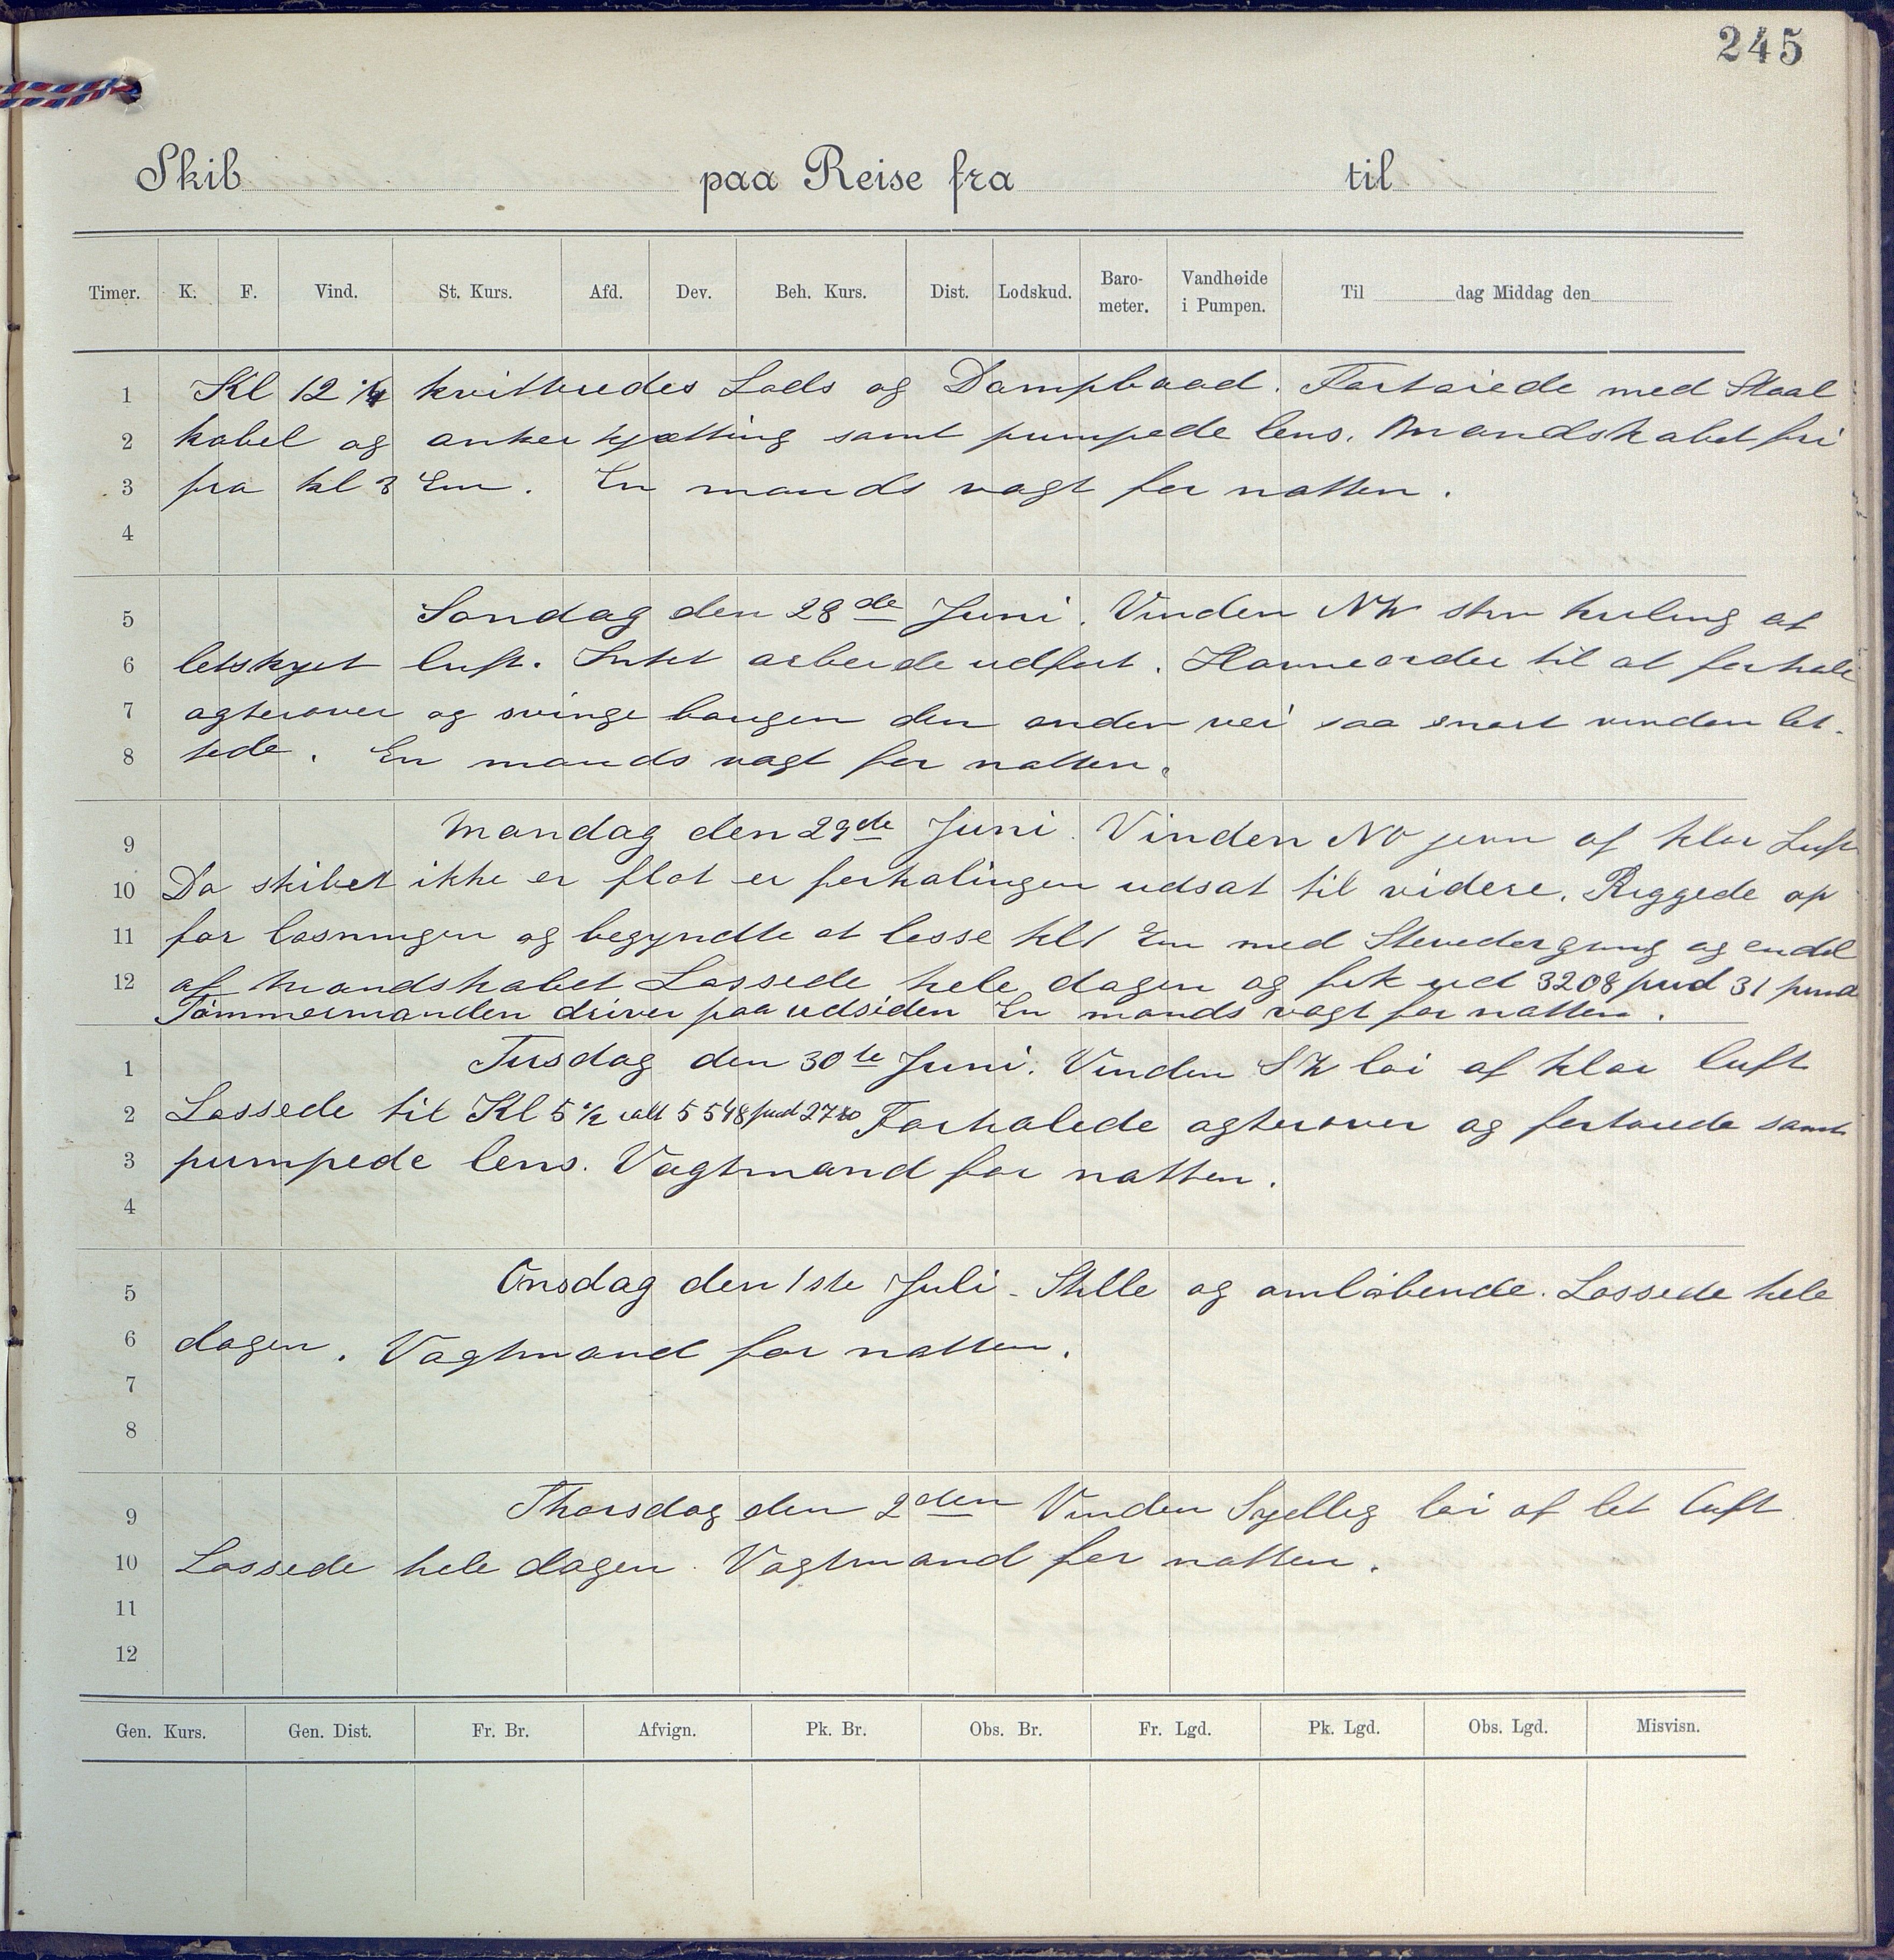 245
Skib paa Reise fra til
Timer. K. F. Vind. St. Kurs. Afd. Dev. Beh. Kurs. Dist. Lodskud. Baro-meter. Vandhøide i Pumpen. Til dag Middag den
1 Kl 12 1/4 kvitteredes Lods og Dampbaad. Fortøiede med Staal
2 kabel og anker kjætting samt pumpede lens. Mandskabet fri
3 fra kl 3 Em. En mands vagt for natten.
4
5 Søndag den 28de Juni. Vinden NW stiv kuling af
6 letskyet luft. Intet arbeide udført. Havneorder til at forhale
7 agterover og svinge baugen den anden vei saa snart vinden let-
8 tede. En mands vagt for natten.
9 Mandag den 29de Juni. Vinden NO jevn af klar Luft
10 Da skibet ikke er flot er forhalingen udsat til videre. Riggede op
11 for losningen og begyndte at losse kl 1 Em med Stevedorgang og endel
12 af Mandskabet Lossede hele dagen og fik ud 3208 pud 31 pund
Tømmermanden driver paa udsiden En mands vagt for natten.
1 Tirsdag den 30te Juni. Vinden SW løi af klar luft
2 Lossede til Kl 5 1/2 ialt 5548 pud 27 Forhalede agterover og fortøiede samt
3 pumpede lens. Vagtmand for natten.
4
5 Onsdag den 1ste Juli - Stille og omløbende. Lossede hele
6 dagen. Vagtmand for natten.
7
8
9 Thorsdag den 2den Vinden Sydlig løi af let luft
10 Lossede hele dagen. Vagtmand for natten.
11
12
Gen. Kurs. Gen. Dist. Fr. Br. Afvign. Pk. Br. Obs. Br. Fr. Lgd. Pk. Lgd. Obs. Lgd. Misvisn.